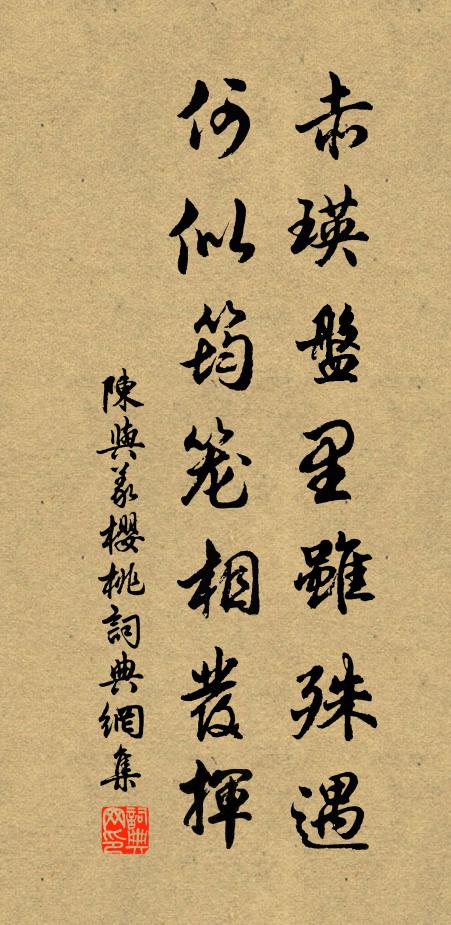 赤瑛盤里雖殊遇
何似筠笼相發揮
陳與義櫻桃詞典網集
詞典网印